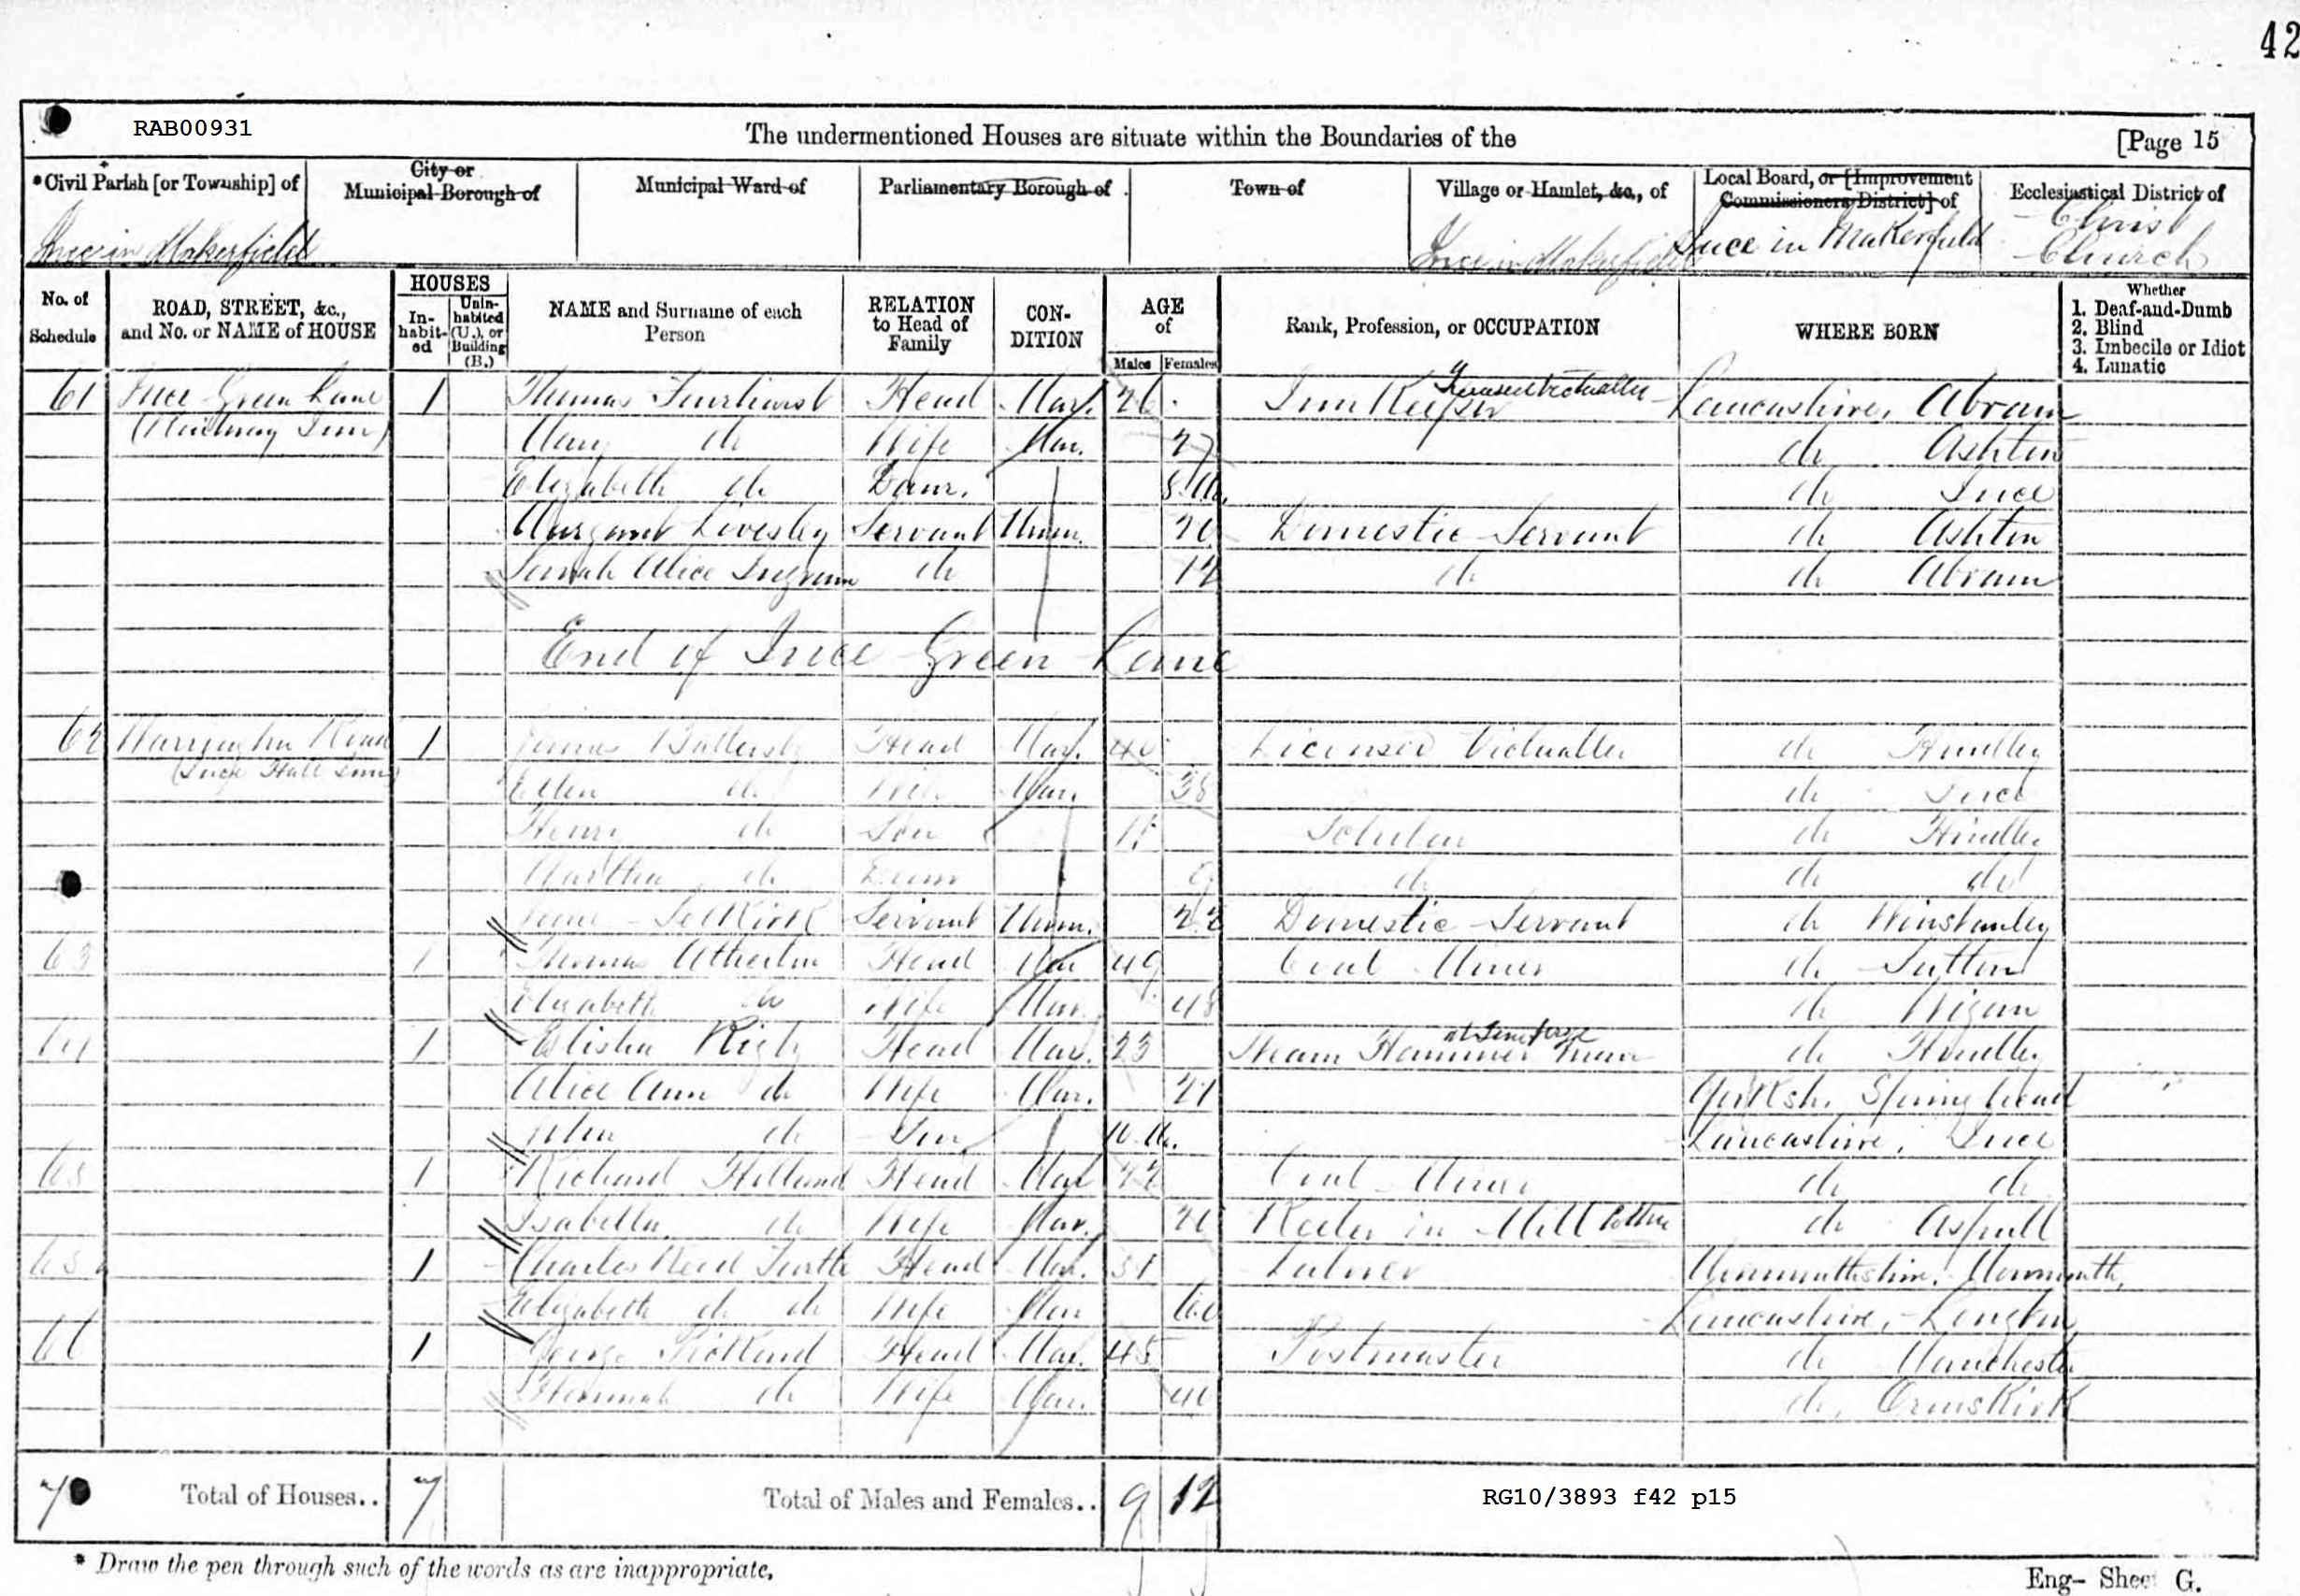 42
RAB00931 The undermentioned Houses are situate within the Boundaries of the [Page 15
*Civil Parish [or Township] of City or Municipal Borough of Municipal Ward of Parliamentary Borough of Town of Village or Hamlet, &c., of Local Board, or [Improvement Commissioners District] of Ecclesiastical District of
Ince in Makerfield Ince in Makerfield Ince in Makerfield Christ Church
No. of Schedule ROAD, STREET, &c., and No. or NAME of HOUSE HOUSES Inhabited Uninhabited (U.), or Building (B.) NAME and Surname of each Person RELATION to Head of Family CONDITION AGE of Males Females Rank, Profession, or OCCUPATION WHERE BORN Whether 1. Deaf-and-Dumb 2. Blind 3. Imbecile or Idiot 4. Lunatic
61 Ince Green Lane 1 Thomas Fairhurst Head Mar. 26 Inn Keeper Licensed Victualler Lancashire, Abram
(Railway Inn) Mary do Wife Mar. 27 do Ashton
Elizabeth do Daur. 8 M. do Ince
Margaret Livesley Servant Unm. 20 Domestic Servant do Ashton
Sarah Alice Ingram do 14 do do Abram
End of Ince Green Lane
62 Warrington Road 1 James Battersby Head Mar. 40 Licensed Victualler do Hindley
(Ince Hall Inn) Ellen do Wife Mar. 38 do Ince
Henry do Son 11 Scholar do Hindley
Martha do Daur 9 do do do
Jane Selkirk Servant Unm. 22 Domestic Servant do Winstanley
63 1 Thomas Atherton Head Mar 49 Coal Miner do Sutton
Elizabeth do Wife Mar 48 do Wigan
64 1 Elisha Rigby Head Mar. 23 Steam Hammer Man at Iron forge do Hindley
Alice Ann do Wife Mar. 21 Yorksh. Springhead
John do Son 10 M. Lancashire, Ince
65 1 Richard Holland Head Mar 22 Coal Miner do do
Isabella do Wife Mar. 20 Reeler in Mill Cotton do Aspull
65a 1 Charles Reed Turtle Head Mar. 51 Labourer Monmouthshire, Monmouth
Elizabeth do do Wife Mar 60 Lancashire, Longton
66 1 George Pickland Head Mar. 45 Postmaster do Manchester
Hannah do Wife Mar. 40 do, Ormskirk
7 Total of Houses.. 7 Total of Males and Females.. 9 12 RG10/3893 f42 p15
* Draw the pen through such of the words as are inappropriate.
Eng- Sheet G.